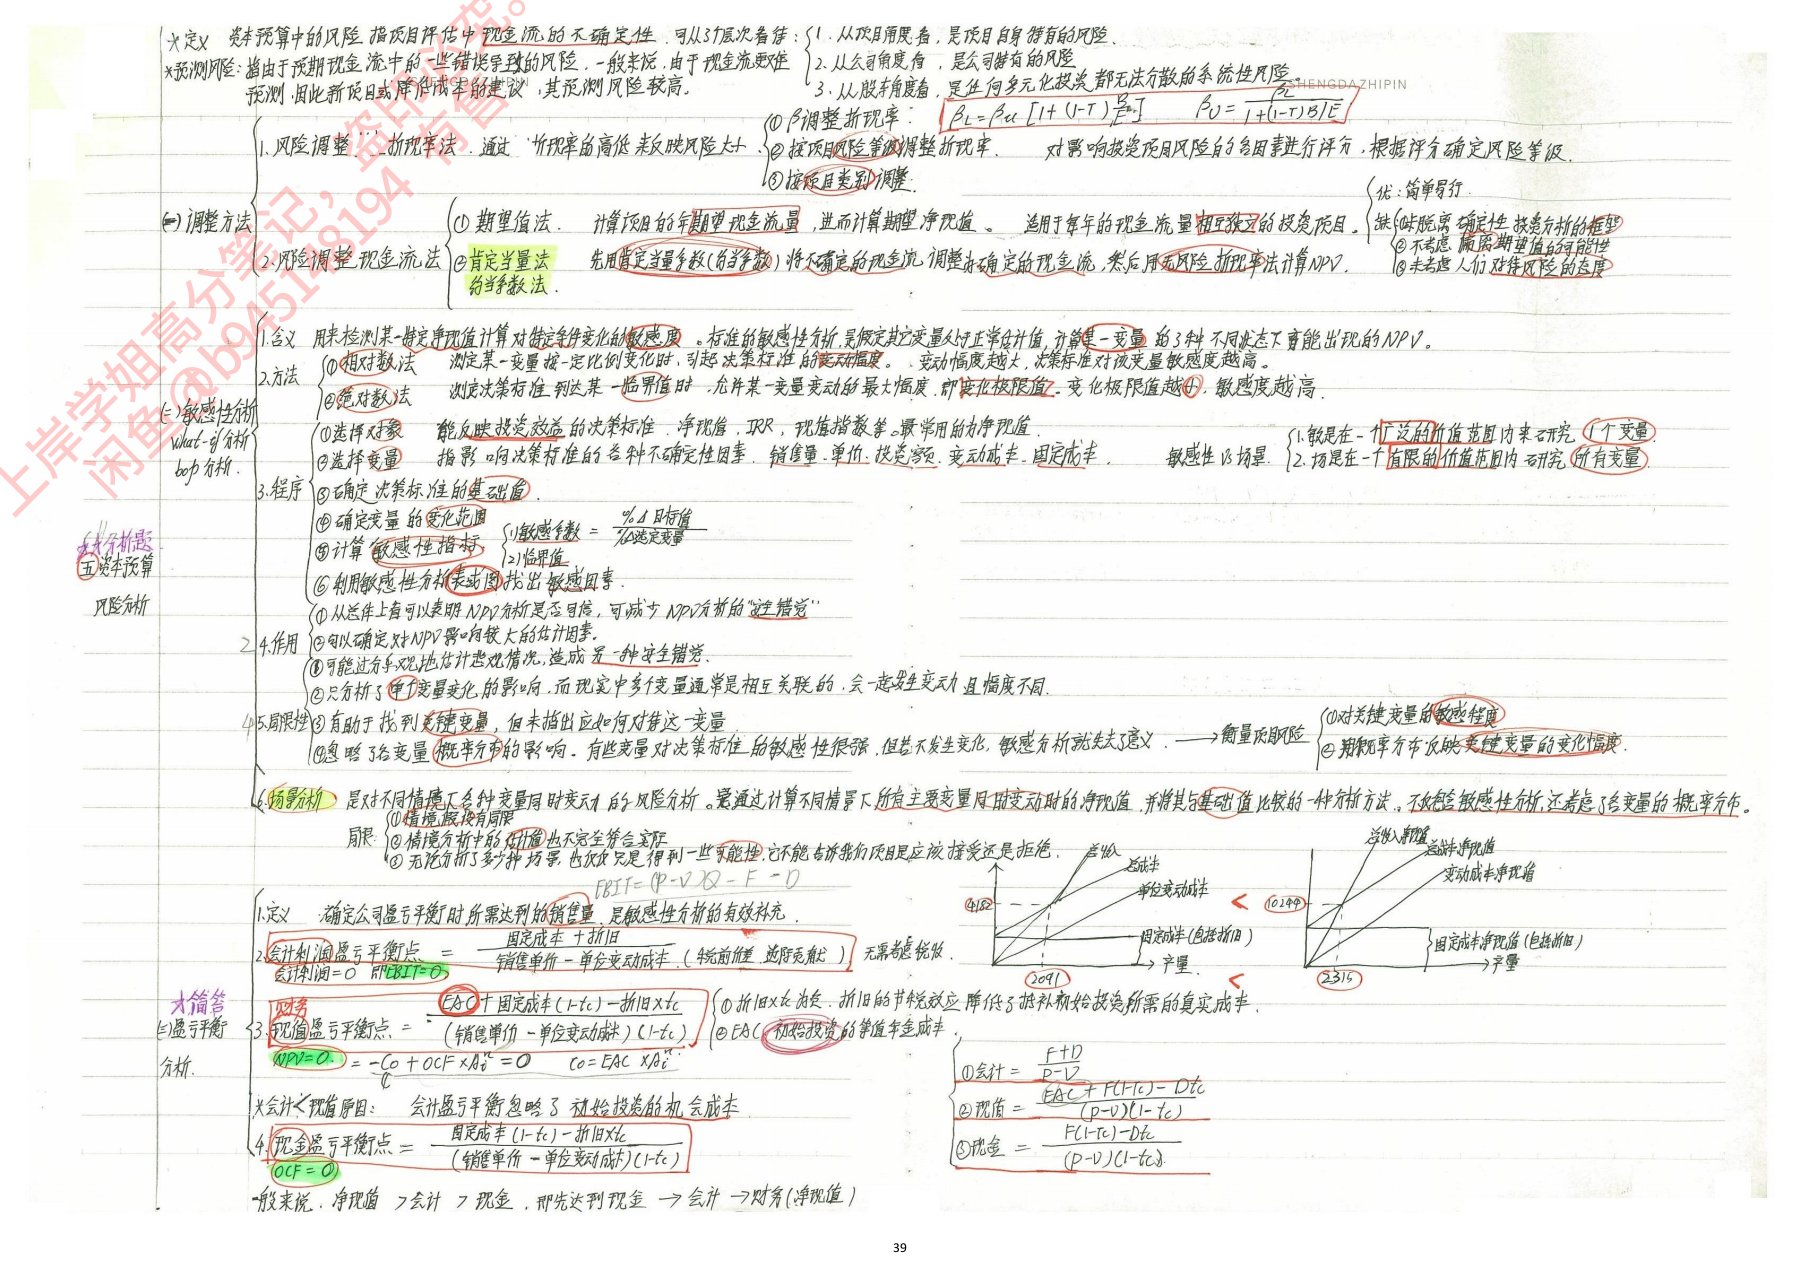 *定义 资本预算中的风险 指项目评估中现金流的不确定性,可从3个层次看待:
1. 从项目角度看,是项目自身特有的风险.
2. 从公司角度看,是公司特有的风险
3. 从股东角度看,是任何多元化投资都无法分散的系统性风险。
*预测风险:指由于预期现金流中的一些错误导致的风险,一般来说,由于现金流更难
预测,因此新项目或降低成本的建议,其预测风险较高。
SHENGDAZHIPIN
五 资本预算
风险分析
(一)调整方法
1.风险调整折现率法.通过折现率的高低来反映风险大小
① β调整折现率: βL=βu[1+(1-T)B/E] βU=βL/1+(1-T)B/E
② 按项目风险等级调整折现率. 对影响投资项目风险的各因素进行评分,根据评分确定风险等级.
③ 按项目类别调整.
2.风险调整现金流法
① 期望值法. 计算项目的年期望现金流量,进而计算期望净现值。 适用于每年的现金流量相互独立的投资项目。
优:简单易行.
缺 ①脱离确定性投资分析的框架
② 不考虑偏离期望值的可能性
③ 未考虑人们对待风险的态度
② 肯定当量法 约当系数法. 先用肯定当量系数(约当系数)将不确定的现金流调整为确定的现金流,然后用无风险折现率法计算NPV.
(二)敏感性分析
what-if分析
bop分析.
1.含义 用来检测某一特定净现值计算对特定条件变化的敏感度。标准的敏感性分析,是假定其它变量处于正常估计值,计算某一变量的3种不同状态下可能出现的NPV。
2.方法
① 相对数法 测定某一变量按一定比例变化时,引起决策标准的变动幅度。变动幅度越大,决策标准对该变量敏感度越高。
② 绝对数法 测定决策标准到达某一临界值时,允许某一变量变动的最大幅度,即变化极限值。变化极限值越小,敏感度越高.
3.程序
①选择对象 能反映投资效益的决策标准.净现值,IRR,现值指数等。最常用的为净现值.
②选择变量 指影响决策标准的各种不确定性因素.销售量.单价.投资额.变动成本.固定成本.
敏感性 VS 场景.
1. 敏是在一个广泛的价值范围内来研究1个变量.
2. 场是在一个有限的价值范围内研究所有变量.
③ 确定决策标准的基础值.
④ 确定变量的变化范围
⑤ 计算敏感性指标 (1)敏感系数 = %Δ目标值/%Δ选定变量
(2)临界值
⑥ 利用敏感性分析表或图找出敏感因素.
2 4.作用
① 从总体上看可以表明NPV分析是否可信,可减少NPV分析的"安全错觉"
② 可以确定对NPV影响较大的估计因素.
4 5.局限性
① 可能过分乐观地估计悲观情况,造成另一种安全错觉.
② 只分析了单个变量变化的影响,而现实中多个变量通常是相互关联的,会一起发生变动且幅度不同.
③ 有助于找到关键变量,但未指出应如何对待这一变量
④ 忽略了各变量概率分布的影响。有些变量对决策标准的敏感性很强,但若不发生变化,敏感分析就失去了意义. → 衡量项目风险
①对关键变量的敏感程度
② 用概率分布反映关键变量的变化幅度.
6.场景分析 是对不同情境下各种变量同时变动的风险分析。是通过计算不同情景下所有主要变量同时变动时的净现值,并将其与基础值比较的一种分析方法。不仅包含敏感性分析,还考虑了各变量的概率分布。
局限: ①情境假设有局限
② 情境分析中的估计值也不完全符合实际
③ 无论分析了多少种场景,也仅仅只是得到一些可能性,它不能告诉我们项目是应该接受还是拒绝.
☆简答
(三)盈亏平衡
分析.
EBIT=(P-V)Q-F-D
1.定义 确定公司盈亏平衡时所需达到的销售量,是敏感性分析的有效补充.
2.会计利润盈亏平衡点 = 固定成本+折旧/销售单价-单位变动成本.(税前价差 边际贡献) 无需考虑税收.
会计利润=0 即EBIT=0
财务
3.现值盈亏平衡点 = EAC+固定成本(1-tc)-折旧×tc/(销售单价-单位变动成本)(1-tc)
① 折旧×tc为负,折旧的节税效应降低了抵补初始投资所需的真实成本.
② EAC:初始投资的等值年金成本.
NPV=0. = -C0+OCF×A =0 C0=EAC×A
*会计<现值原因: 会计盈亏平衡忽略了初始投资的机会成本
4.现金盈亏平衡点 = 固定成本(1-tc)-折旧×tc/(销售单价-单位变动成本)(1-tc)
OCF=0
一般来说,净现值>会计>现金,即先达到现金→会计→财务(净现值)
总收入
总成本
单位变动成本
4182
固定成本(包括折旧)
产量
2091
<
<
总收入净现值
总成本净现值
变动成本净现值
10244
固定成本净现值(包括折旧)
产量
2315
①会计 = F+D/P-V
②现值 = EAC+F(1-tc)-Dtc/(p-v)(1-tc)
③现金 = F(1-tc)-Dtc/(p-v)(1-tc).
上岸学姐高分笔记,盗印必究。
闲鱼@b945148194 有售
39